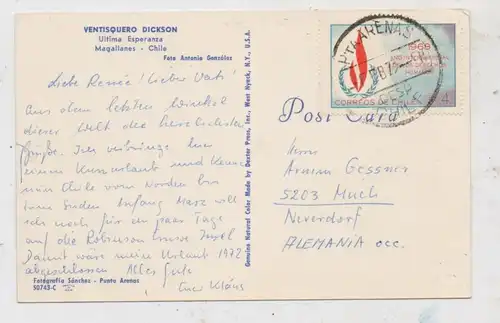 VENTISQUERO DICKSON
Ultima Esperanza
Magallanes - Chile
Foto Antonio González
Liebe Renée! Lieber Vati!
Aus dem letzten Winkel
dieser Welt die herzlichsten
Grüße. Ich verbringe hier
einen Kurzurlaub und kenne
nun Chile vom Norden bis
zum Süden. Anfang März will
ich noch für ein paar Tage
auf die Robinson Crusoe Insel
Damit wäre mein Urlaub 1972
abgeschlossen. Alles Gute
Euer Klaus
Fotografía Sánchez - Punta Arenas
50743-C
Genuine Natural Color Made by Dexter Press, Inc., West Nyack, N.Y., U.S.A.
Post Card
PTA. ARENAS
CHILE
1968
CORREOS DE CHILE
4
Herrn
Armin Gessner
5203 Much
Neverdorf
ALEMANIA occ.